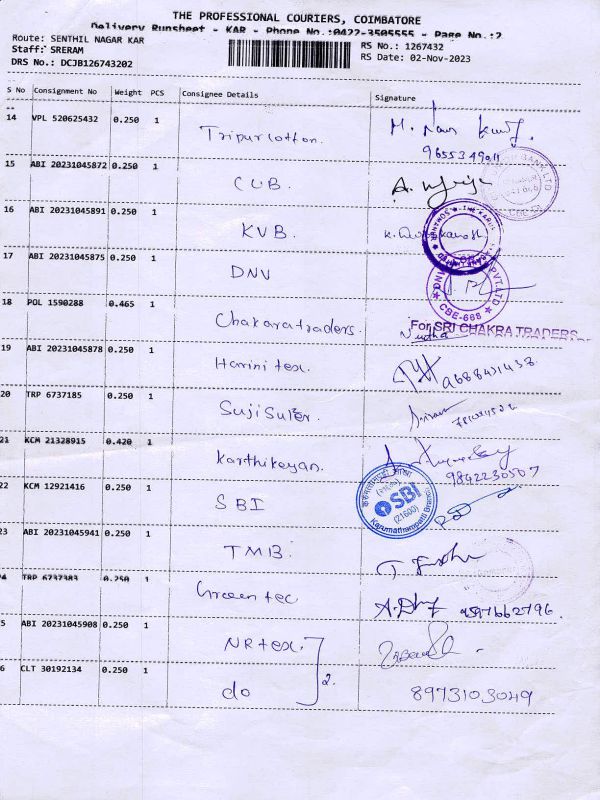 THE PROFESSIONAL COURIERS, COIMBATORE
Delivery Runsheet - KAR - Phone No.:0422-3505555 - Page No.:2
Route: SENTHIL NAGAR KAR
Staff: SRERAM
DRS No.: DCJB126743202
RS No.: 1267432
RS Date: 02-Nov-2023
S No Consignment No Weight PCS Consignee Details Signature
14 VPL 520625432 0.250 1 Tripur Cotton.
9655349011
15 ABI 20231045872 0.250 1 CUB.
16 ABI 20231045891 0.250 1 KVB.
17 ABI 20231045875 0.250 1 DNV
CBE-668
18 POL 1590288 0.465 1 Chakaratraders.
For SRI CHAKRA TRADERS
19 ABI 20231045878 0.250 1 Harini tex.
20 TRP 6737185 0.250 1 Suji Sulzer.
21 KCM 21328915 0.420 1 Karthikeyan.
9842230507
22 KCM 12921416 0.250 1 SBI
SBI
(21600)
Karumathampatti Branch
23 ABI 20231045941 0.250 1 TMB.
TRP 6737383 0.250 1 Green tec
5 ABI 20231045908 0.250 1 NR tex.
2.
6 CLT 30192134 0.250 1 do
8973103049